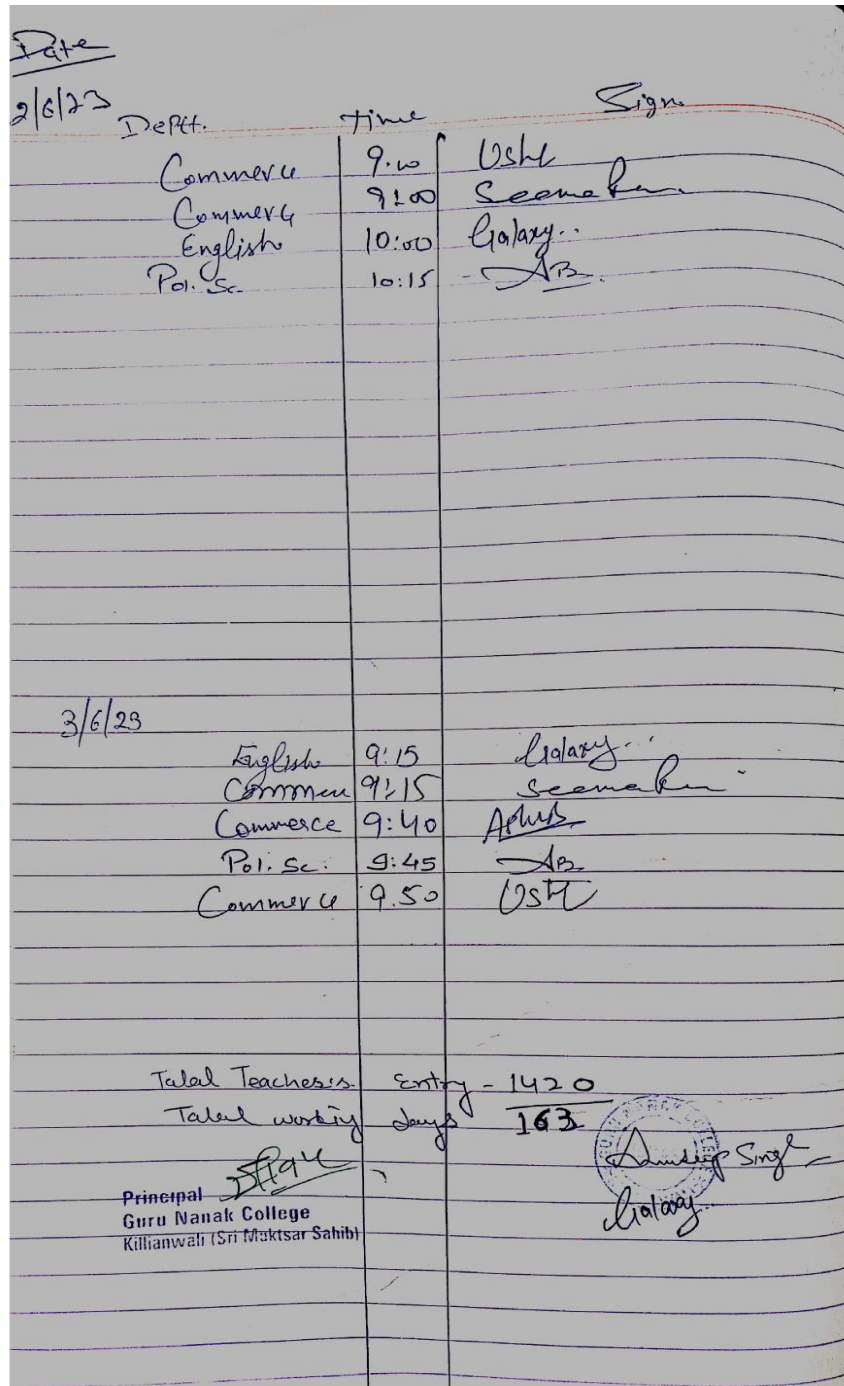 Date
2/6/23
Deptt. Time Sign.
Commerce 9.00 Ush
Commerce 9:00 Seema
English 10:00 Galaxy..
Pol. Sc. 10:15 AB.
3/6/23
English 9:15 Galaxy...
Commer 9:15 Seema
Commerce 9:40
Pol. Sc. 9:45 AB
Commerce 9.50 Ush
Total Teachers's Entry - 1420
Total working days 163
Singh
Principal
Guru Nanak College
Killianwali (Sri Muktsar Sahib)
Galaxy